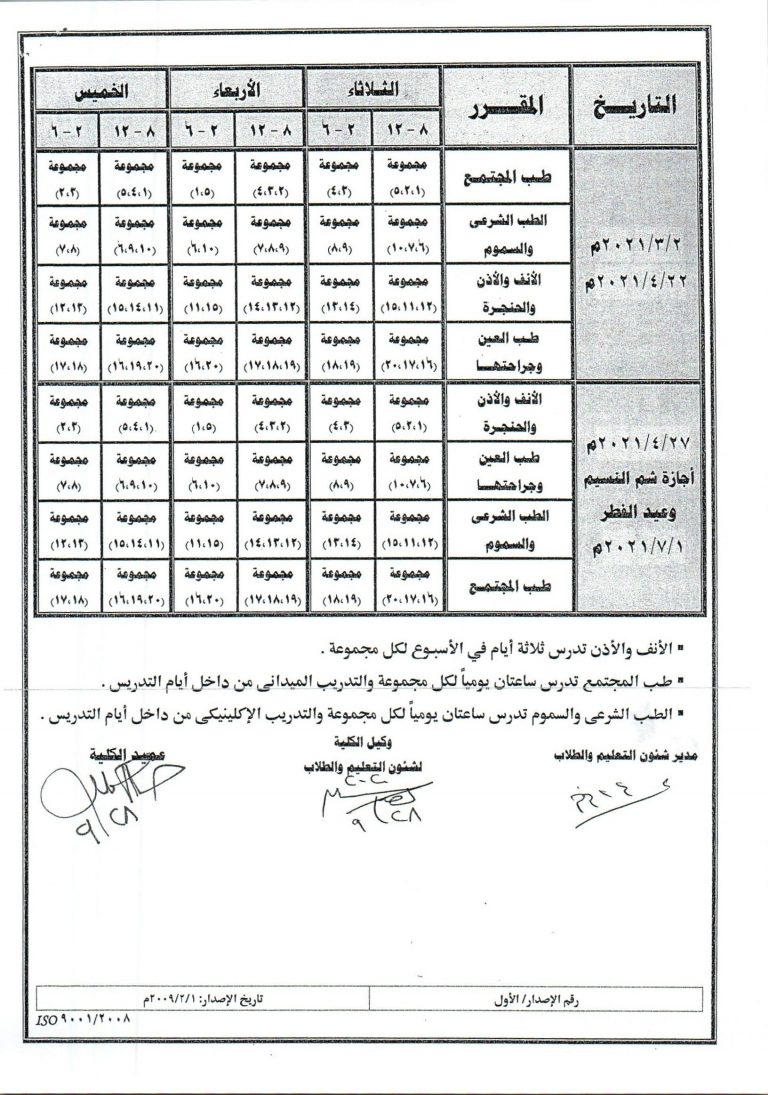 التاريخ المقرر الثلاثاء الأربعاء الخميس
٨ - ١٢ ٢ - ٦ ٨ - ١٢ ٢ - ٦ ٨ - ١٢ ٢ - ٦
٢٠٢١/٣/٢م
٢٠٢١/٤/٢٢م
طب المجتمع مجموعة (٥،٢،١) مجموعة (٤،٣) مجموعة (٤،٣،٢) مجموعة (١،٥) مجموعة (٥،٤،١) مجموعة (٢،٣)
الطب الشرعى والسموم مجموعة (١٠،٧،٦) مجموعة (٨،٩) مجموعة (٧،٨،٩) مجموعة (٦،١٠) مجموعة (٦،٩،١٠) مجموعة (٧،٨)
الأنف والأذن والحنجرة مجموعة (١٥،١١،١٢) مجموعة (١٣،١٤) مجموعة (١٤،١٣،١٢) مجموعة (١١،١٥) مجموعة (١٥،١٤،١١) مجموعة (١٢،١٣)
طب العين وجراحتها مجموعة (٢٠،١٧،١٦) مجموعة (١٨،١٩) مجموعة (١٧،١٨،١٩) مجموعة (١٦،٢٠) مجموعة (١٦،١٩،٢٠) مجموعة (١٧،١٨)
٢٠٢١/٤/٢٧م
أجازة شم النسيم
وعيد الفطر
٢٠٢١/٧/١م
الأنف والأذن والحنجرة مجموعة (٥،٢،١) مجموعة (٤،٣) مجموعة (٤،٣،٢) مجموعة (١،٥) مجموعة (٥،٤،١) مجموعة (٢،٣)
طب العين وجراحتها مجموعة (١٠،٧،٦) مجموعة (٨،٩) مجموعة (٧،٨،٩) مجموعة (٦،١٠) مجموعة (٦،٩،١٠) مجموعة (٧،٨)
الطب الشرعى والسموم مجموعة (١٥،١١،١٢) مجموعة (١٣،١٤) مجموعة (١٤،١٣،١٢) مجموعة (١١،١٥) مجموعة (١٥،١٤،١١) مجموعة (١٢،١٣)
طب المجتمع مجموعة (٢٠،١٧،١٦) مجموعة (١٨،١٩) مجموعة (١٧،١٨،١٩) مجموعة (١٦،٢٠) مجموعة (١٦،١٩،٢٠) مجموعة (١٧،١٨)
▪ الأنف والأذن تدرس ثلاثة أيام في الأسبوع لكل مجموعة .
▪ طب المجتمع تدرس ساعتان يومياً لكل مجموعة والتدريب الميدانى من داخل أيام التدريس .
▪ الطب الشرعى والسموم تدرس ساعتان يومياً لكل مجموعة والتدريب الإكلينيكى من داخل أيام التدريس .
مدير شئون التعليم والطلاب
وكيل الكلية
لشئون التعليم والطلاب
عميد الكلية
٩/٢٨
٩/٢٨
رقم الإصدار/ الأول تاريخ الإصدار: ٢٠٠٩/٢/١م
ISO ٩٠٠١/٢٠٠٨